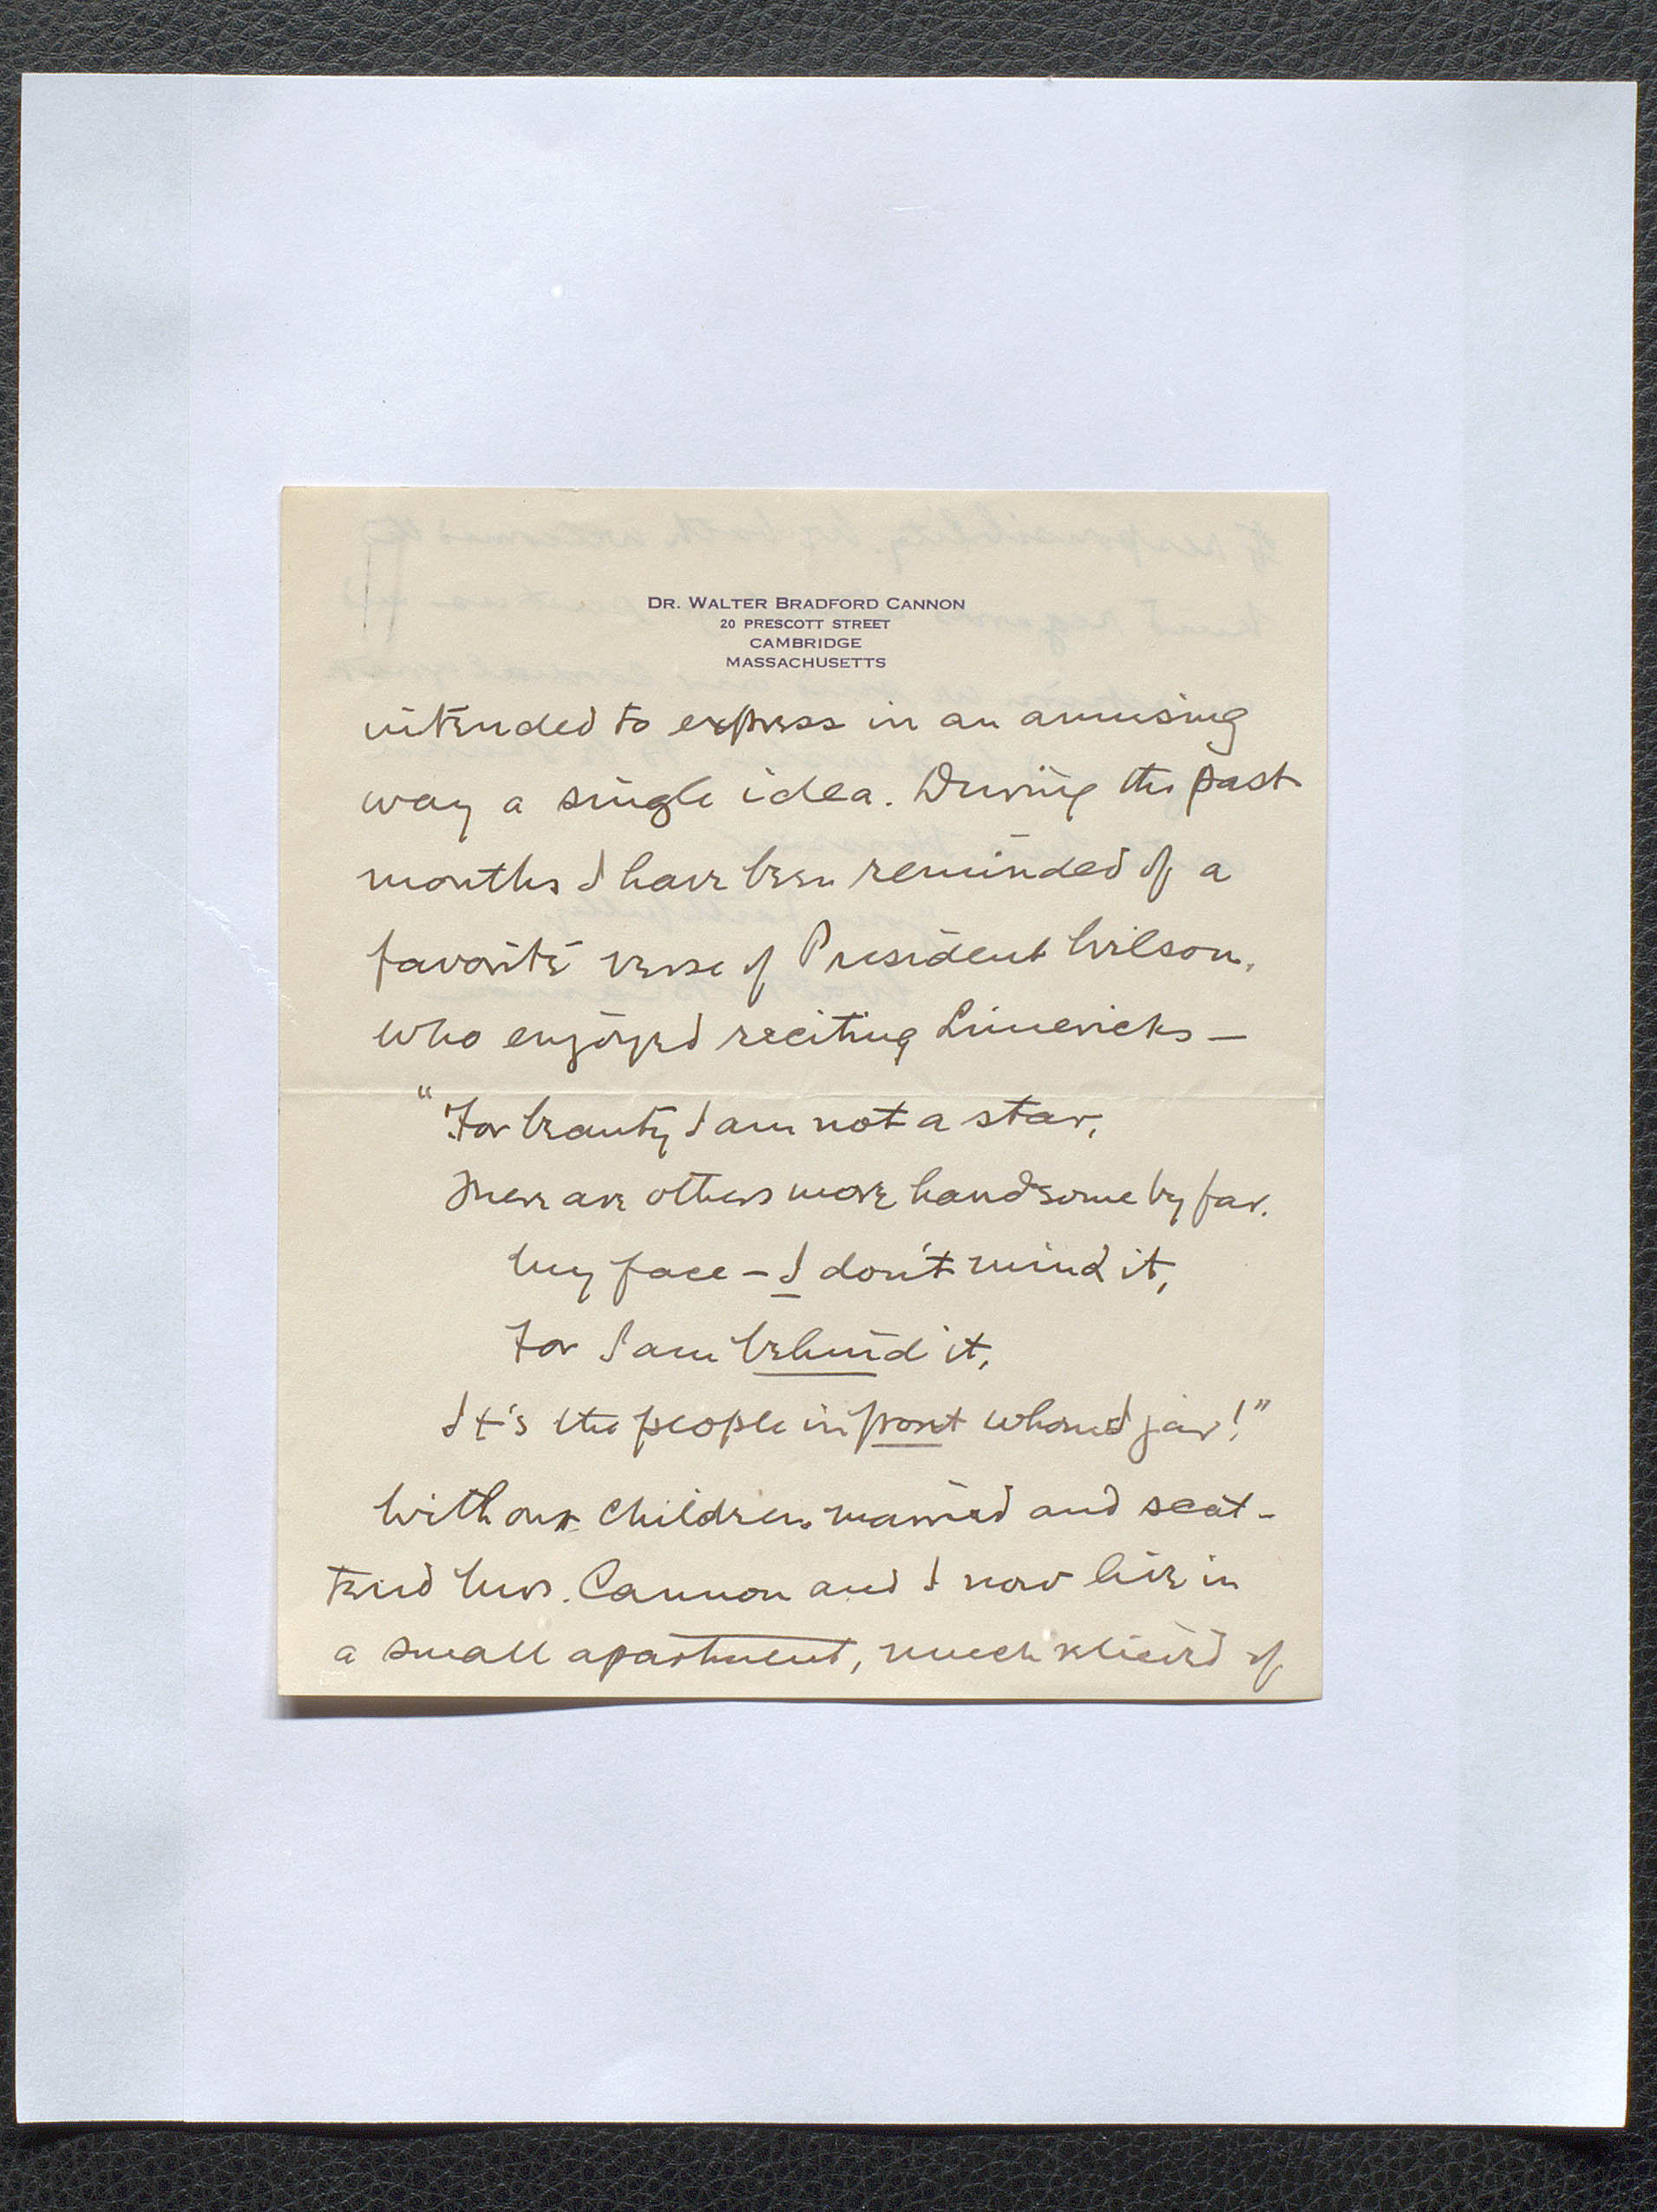 DR. WALTER BRADFORD CANNON
20 PRESCOTT STREET
CAMBRIDGE
MASSACHUSETTS
intended to express in an amusing
way a single idea. During the past
months I have been reminded of a
favorite verse of President Wilson,
who enjoyed reciting Limericks —
"For beauty I am not a star,
There are others more handsome by far.
My face – I don't mind it,
For I am behind it,
It's the people in front whom I jar!"
With our children married and scat-
tered Mrs. Cannon and I now live in
a small apartment, much relieved of